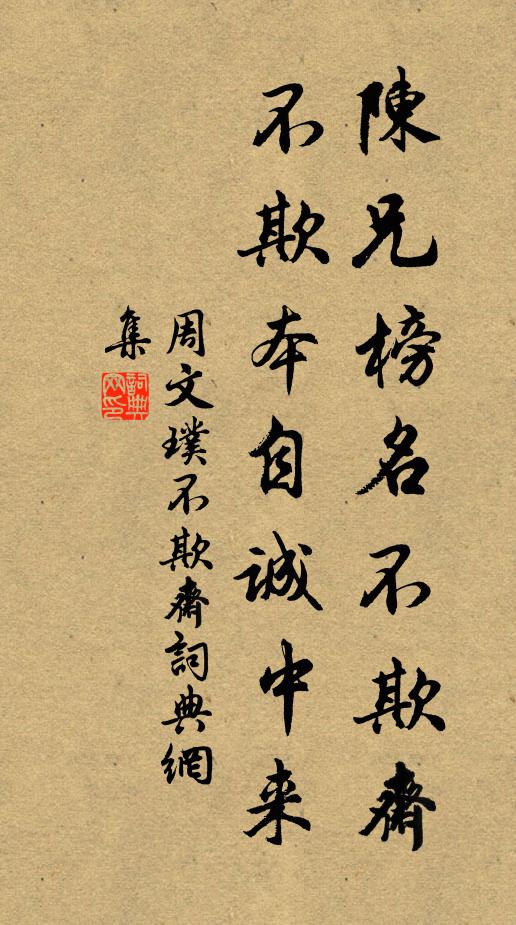 陳兄榜名不欺齋
不欺本自誠中来
周文璞不欺齋詞典網
集
詞典網印